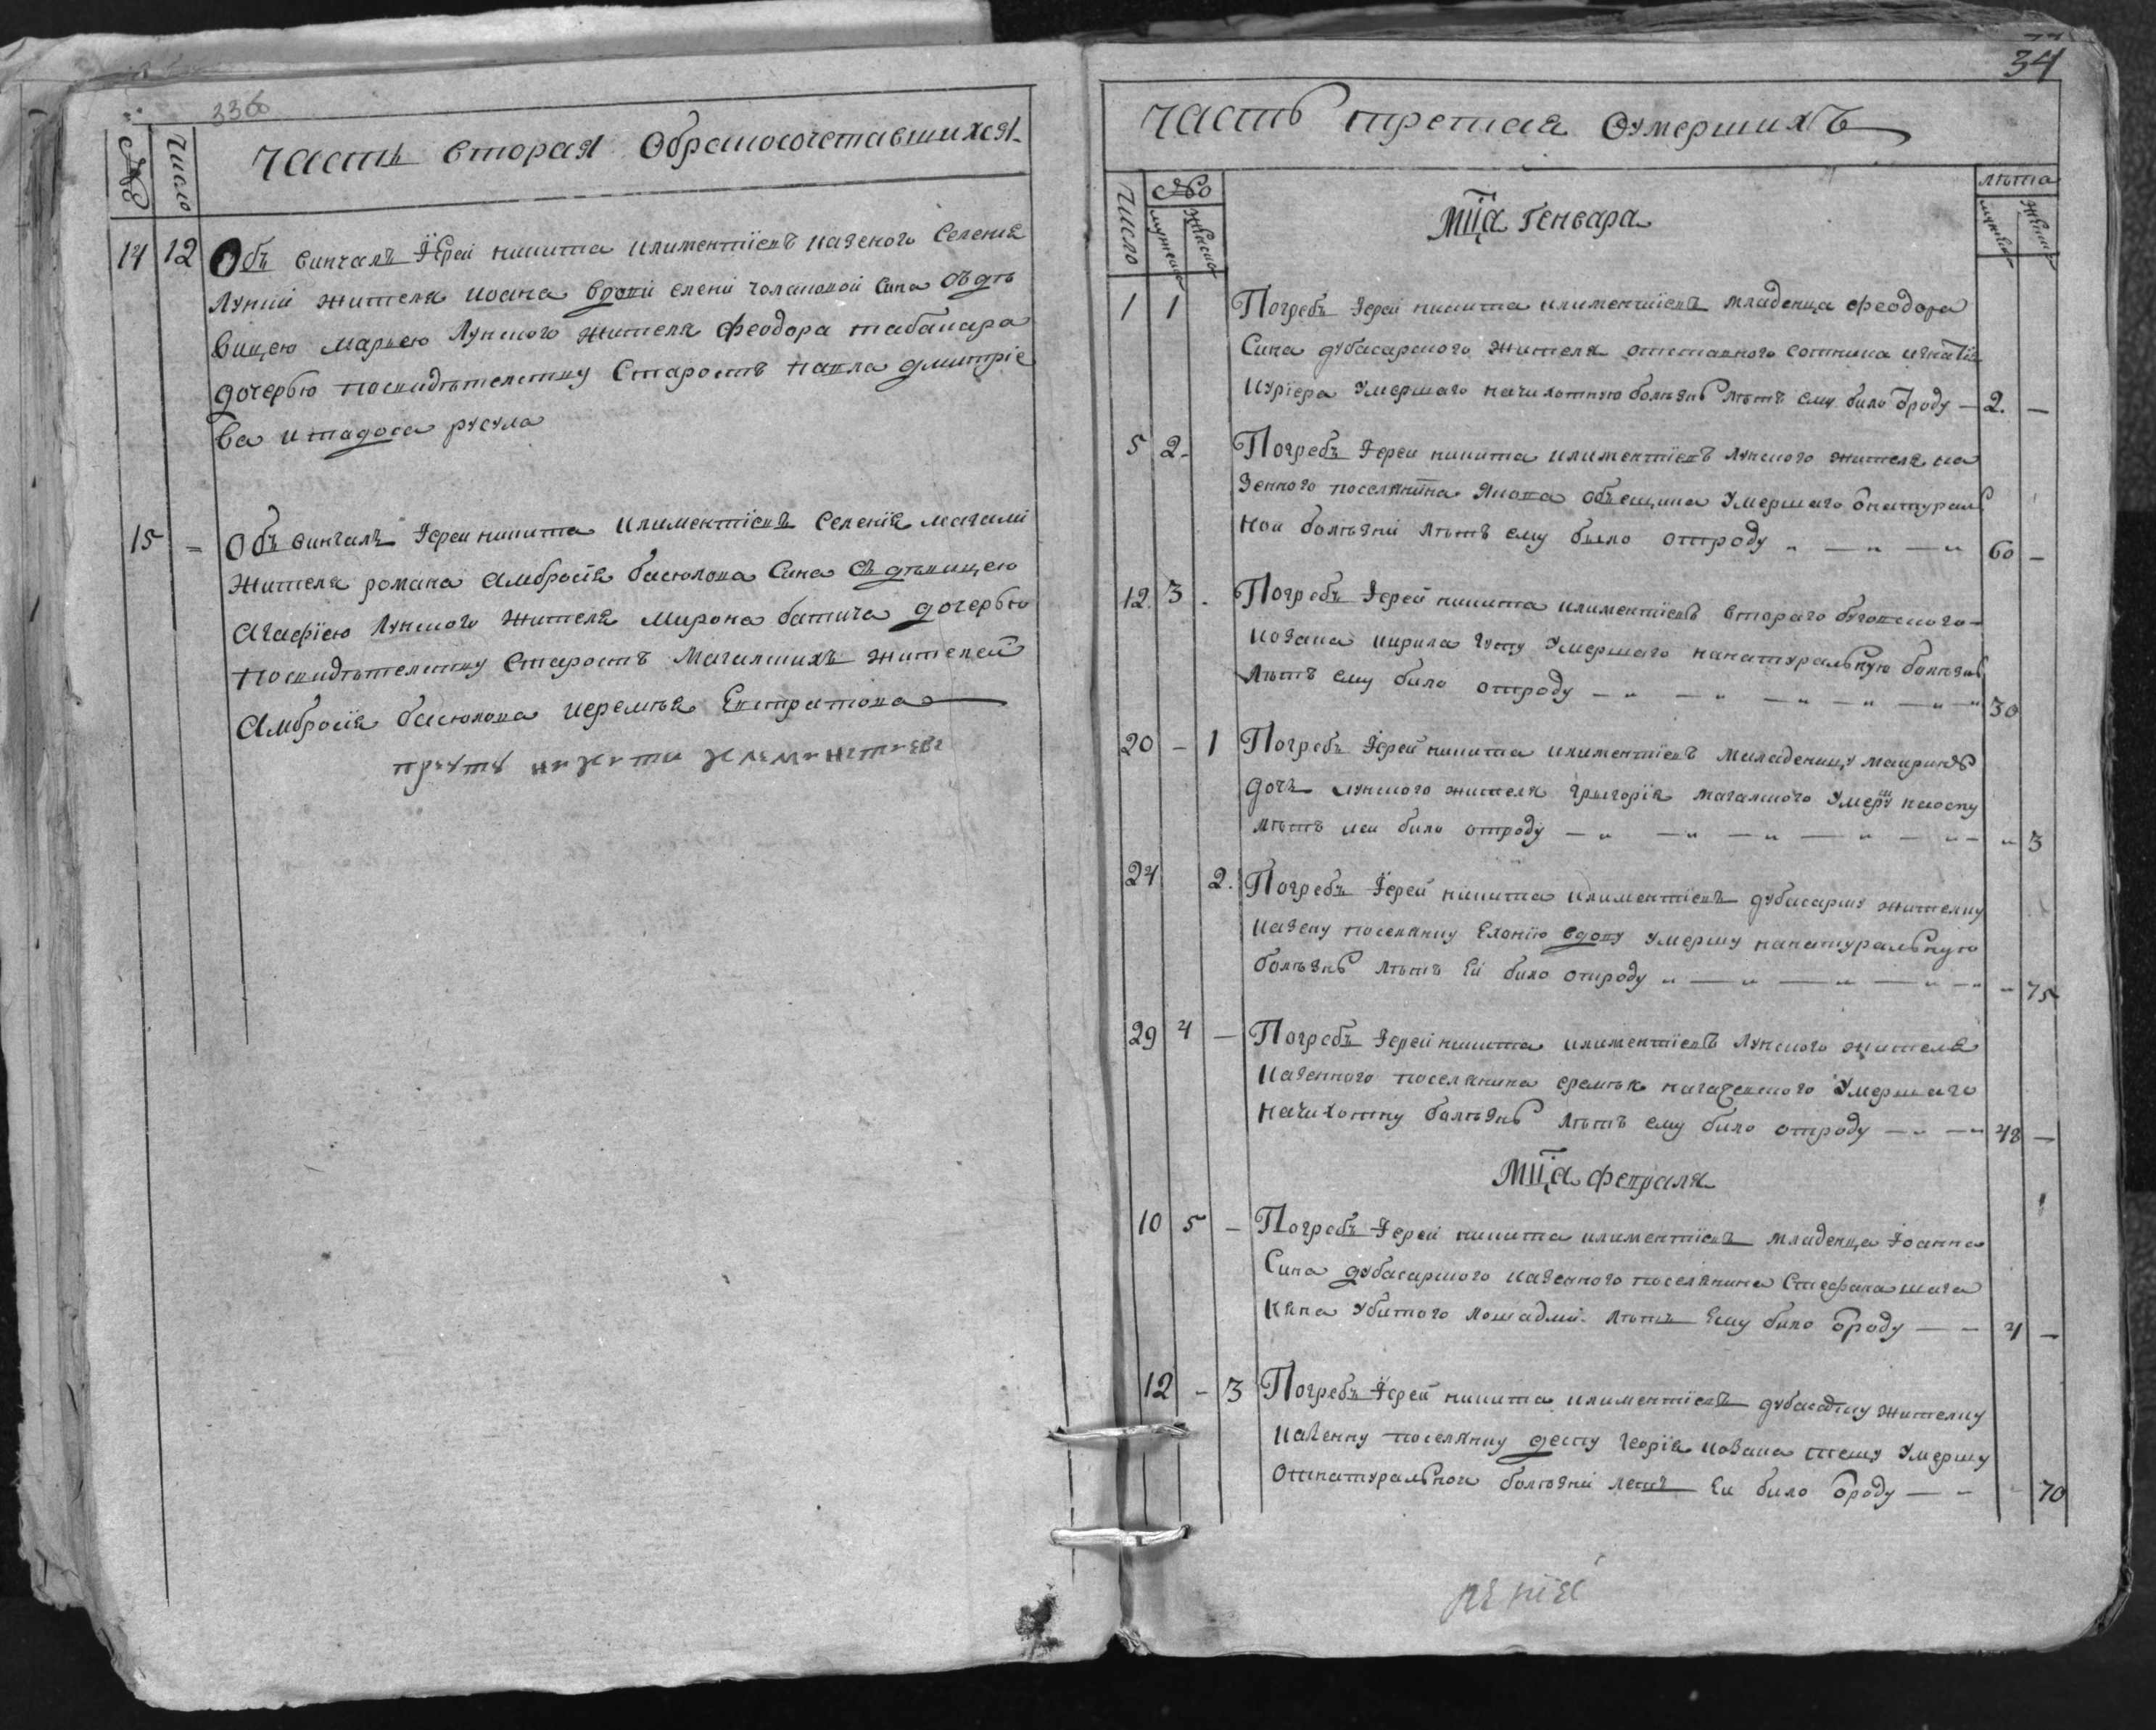 336
№ Число Часть вторая Обракосочетавшихся
14 12 Объ винчалъ Іерей никита климентіевъ казеного Селенія
Лункии жителя иоана вдови елени чолаковой Сина съ дѣ
вицею марьею Лунского жителя феодора табакара
дочерью посвидѣтелству Старостъ павла дмитріе
ва и тадоса русула
15 = Объ винчалъ Іереи никита климентіевъ Селенія магали
жителя романа амбросія басюлова Сина съ дѣвицею
агафіею Лунского жителя мирона батича дочерью
посвидѣтелству Старостъ Магалскихъ жителей
амбросія басюлова иеремѣя Евстратова
34
Часть третая Оумершихъ
Число № мужеска женска Мца генвара лѣта мужеска женска
1 1 Погребъ Іерей никита климентіевъ младенца феодора
Сина дубасарского жителя отставного сотника игнатія
куріера умершаго начихотную болѣзнь лѣтъ ему било ѿроду — 2. —
5 2. Погребъ Іереи никита климентіевъ лунского жителя ка
зенного поселянина Якова умершаго ѿнатураль
нои болѣзни лѣтъ ему было отроду 60 —
12. 3. Погребъ Іерей никита климентіевъ втораго бугского
козака кирила гуску умершаго нанатуральную болѣзнь
лѣтъ ему било отроду 30
20 — 1 Погребъ Іерей никита климентіевъ миладеницу маирину
дочь лунского жителя григорія магалского умершу навоспу
лѣтъ иеи било отроду 3
24 2. Погребъ Іерей никита климентіевъ дубасарску жителку
казену поселянку вдову умершу нанатуральную
болѣзнь лѣтъ Ей било отроду 75
29 4 — Погребъ Іерей никита климентіевъ лунского жителя
казенного поселянина еремѣя умершаго
начихотну болѣзнь лѣтъ ему било отроду 48 —
Мца февраля
10 5 — Погребъ Іерей никита климентіевъ младенца Іоанна
Сина дубасарского казенного поселянина Стефана
убитого лошадми. лѣтъ Ему било ѿроду — 4 —
12 — 3 Погребъ Іерей никита климентіевъ дубасарску жителку
казенну поселянку геѡргія козака тещу умершу
отнатуральной болѣзни летъ Еи било ѿроду — 70